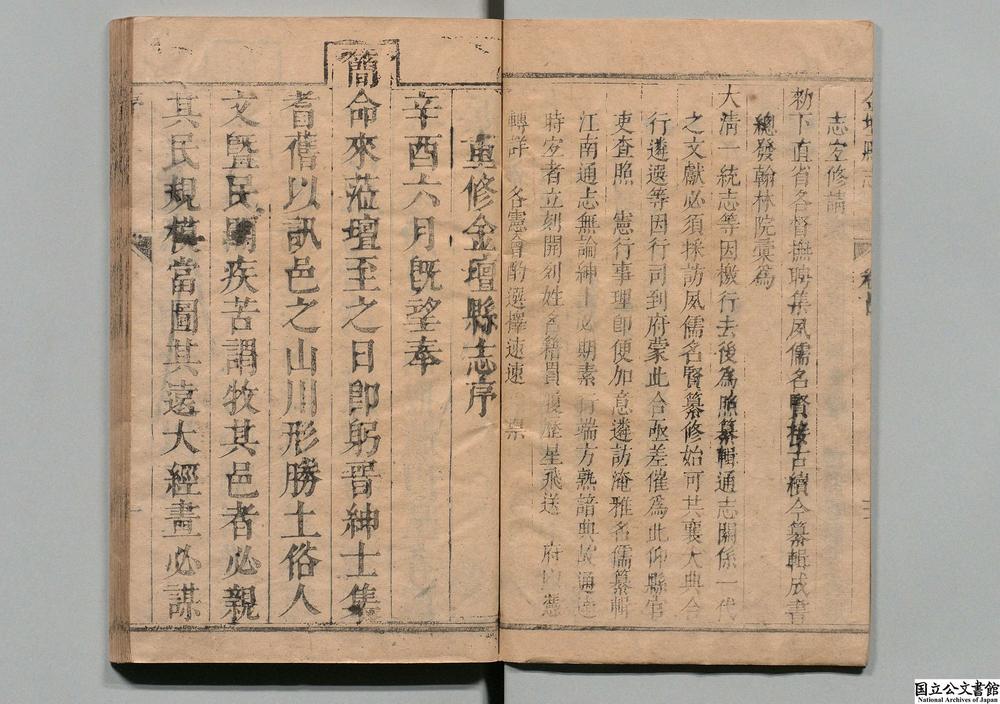 金壇縣志
志定修請
勑下直省各督撫聘集夙儒名賢接古續今纂輯成書
總發翰林院彙為
大清一統志等因檄行去後為照纂輯通志關係一代
之文獻必須採訪夙儒名賢纂修始可共襄大典合
行遴選等因行司到府蒙此合亟差催為此仰縣官
吏查照　憲行事理即便加意遴訪淹雅名儒纂輯
江南通志無論紳士必期素行端方熟諳典故通達
時宜者立刻開列姓名籍貫履歷星飛送　府以憑
轉詳　各憲會酌選擇速速　票
重修金壇縣志序
辛酉六月既望奉
簡命來蒞壇至之日即躬晉紳士集
耆舊以訊邑之山川形勝土俗人
文暨民間疾苦謂牧其邑者必親
其民規模當圖其遠大經畫必謀
序
一
国立公文書館
National Archives of Japan